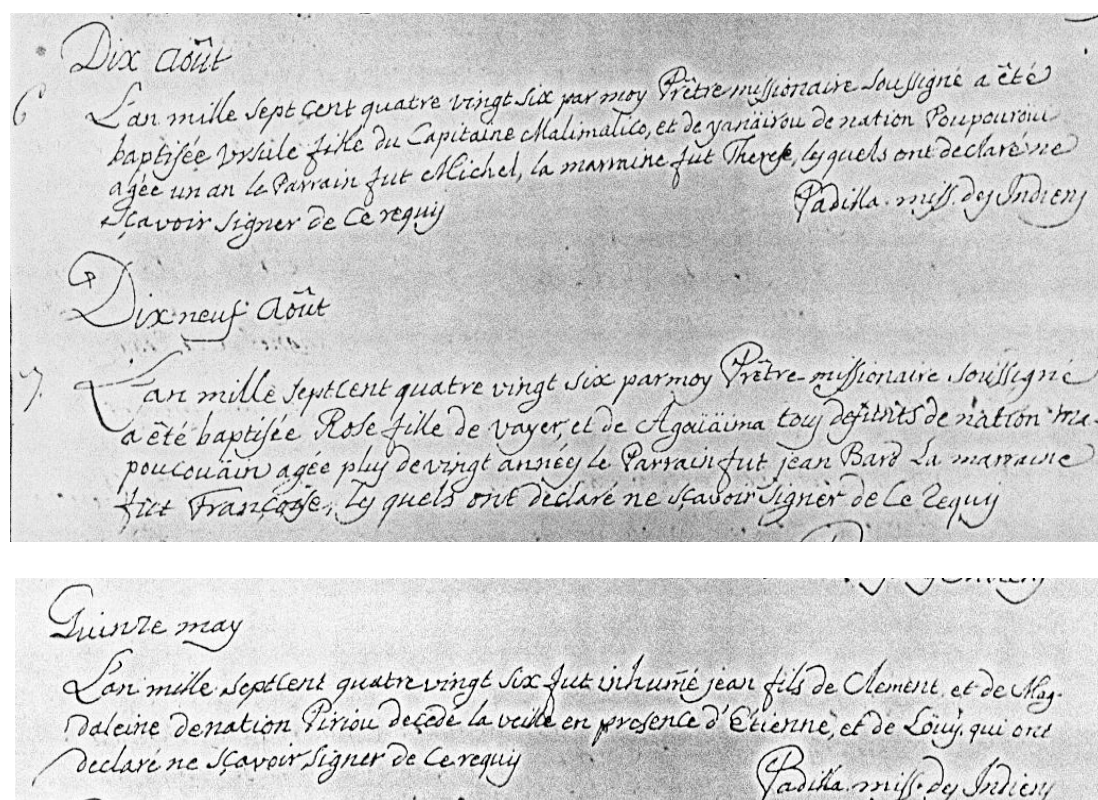 Dix Août
6 L'an mille sept cent quatre vingt six par moy Prêtre missionaire soussigné a été
baptisée Ursule fille du Capitaine Malimalico, et de yanaïrou de nation Poupouroui
agée un an le Parrain fut Michel, la marraine fut Therese, lesquels ont declaré ne
sçavoir signer de ce requis
Padilla. miss. des Indiens
Dix neuf Août
7. L'an mille septcent quatre vingt six par moy Prêtre missionaire soussigné
a été baptisée Rose fille de vayer, et de Agoïaima tous defunts de nation ma-
poucouain agée plus de vingt années le Parrain fut jean Bard la marraine
fut Françoise, lesquels ont declaré ne sçavoir signer de ce requis
Quinze may
L'an mille septcent quatre vingt six fut inhumé jean fils de Clement, et de Mag-
daleine de nation Piriou decede la veille en presence d'Etienne, et de Louis qui ont
declaré ne sçavoir signer de ce requis
Padilla. miss. des Indiens